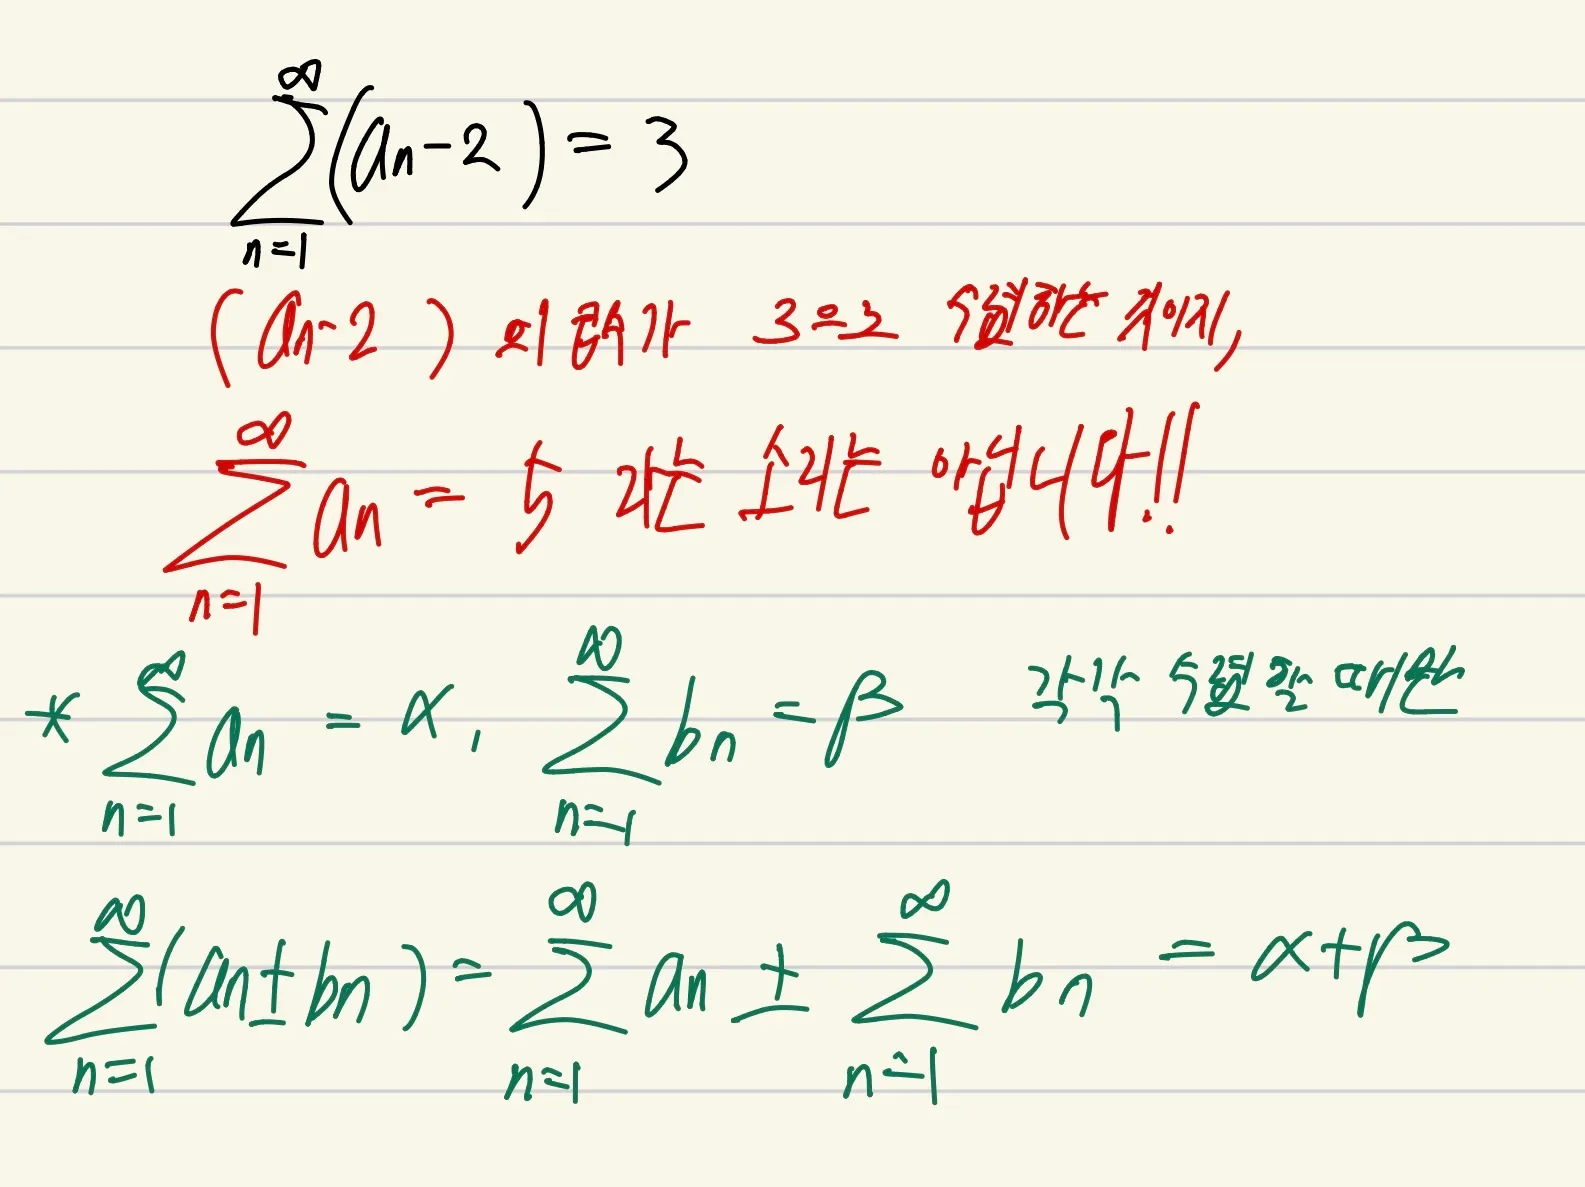 ∞∑n=1 (an-2) = 3
(an-2)의 급수가 3으로 수렴하는 것이지,
∞∑n=1 an = 5 라는 소리는 아닙니다!!
* ∞∑n=1 an = α, ∞∑n=1 bn = β 각각 수렴할 때만
∞∑n=1 (an±bn) = ∞∑n=1 an ± ∞∑n=1 bn = α+β